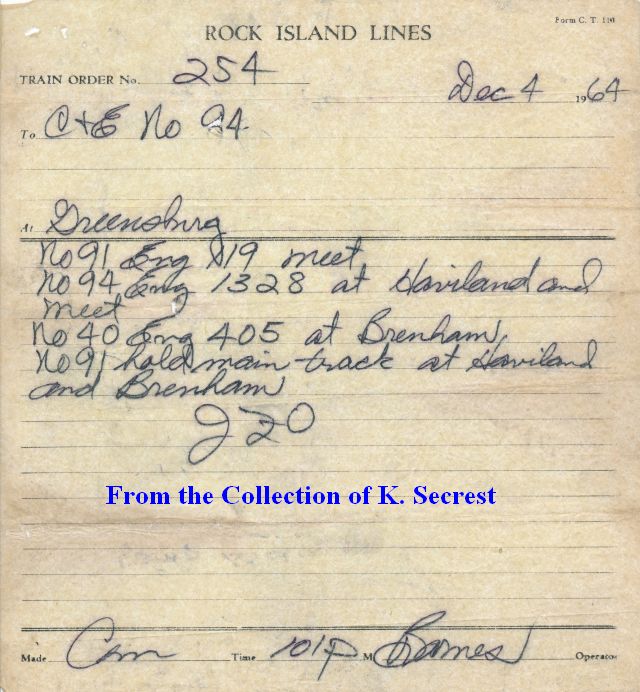 Form C. T. 110
ROCK ISLAND LINES
TRAIN ORDER No. 254
Dec 4 1964
To C+E No 94
At Greensburg
No 91 Eng 119 meet
No 94 Eng 1328 at Haviland and
meet
No 40 Eng 405 at Brenham
No 91 hold main track at Haviland
and Brenham
J20
From the Collection of K. Secrest
Made Com Time 101P M Barnes Operator